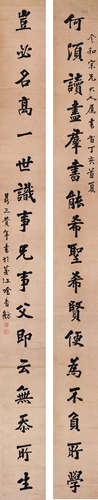 何須讀盡羣書能希聖希賢便為不負所學
令和宗兄大人屬書首丁亥首夏
豈必名高一世識事兄事父即云無忝所生